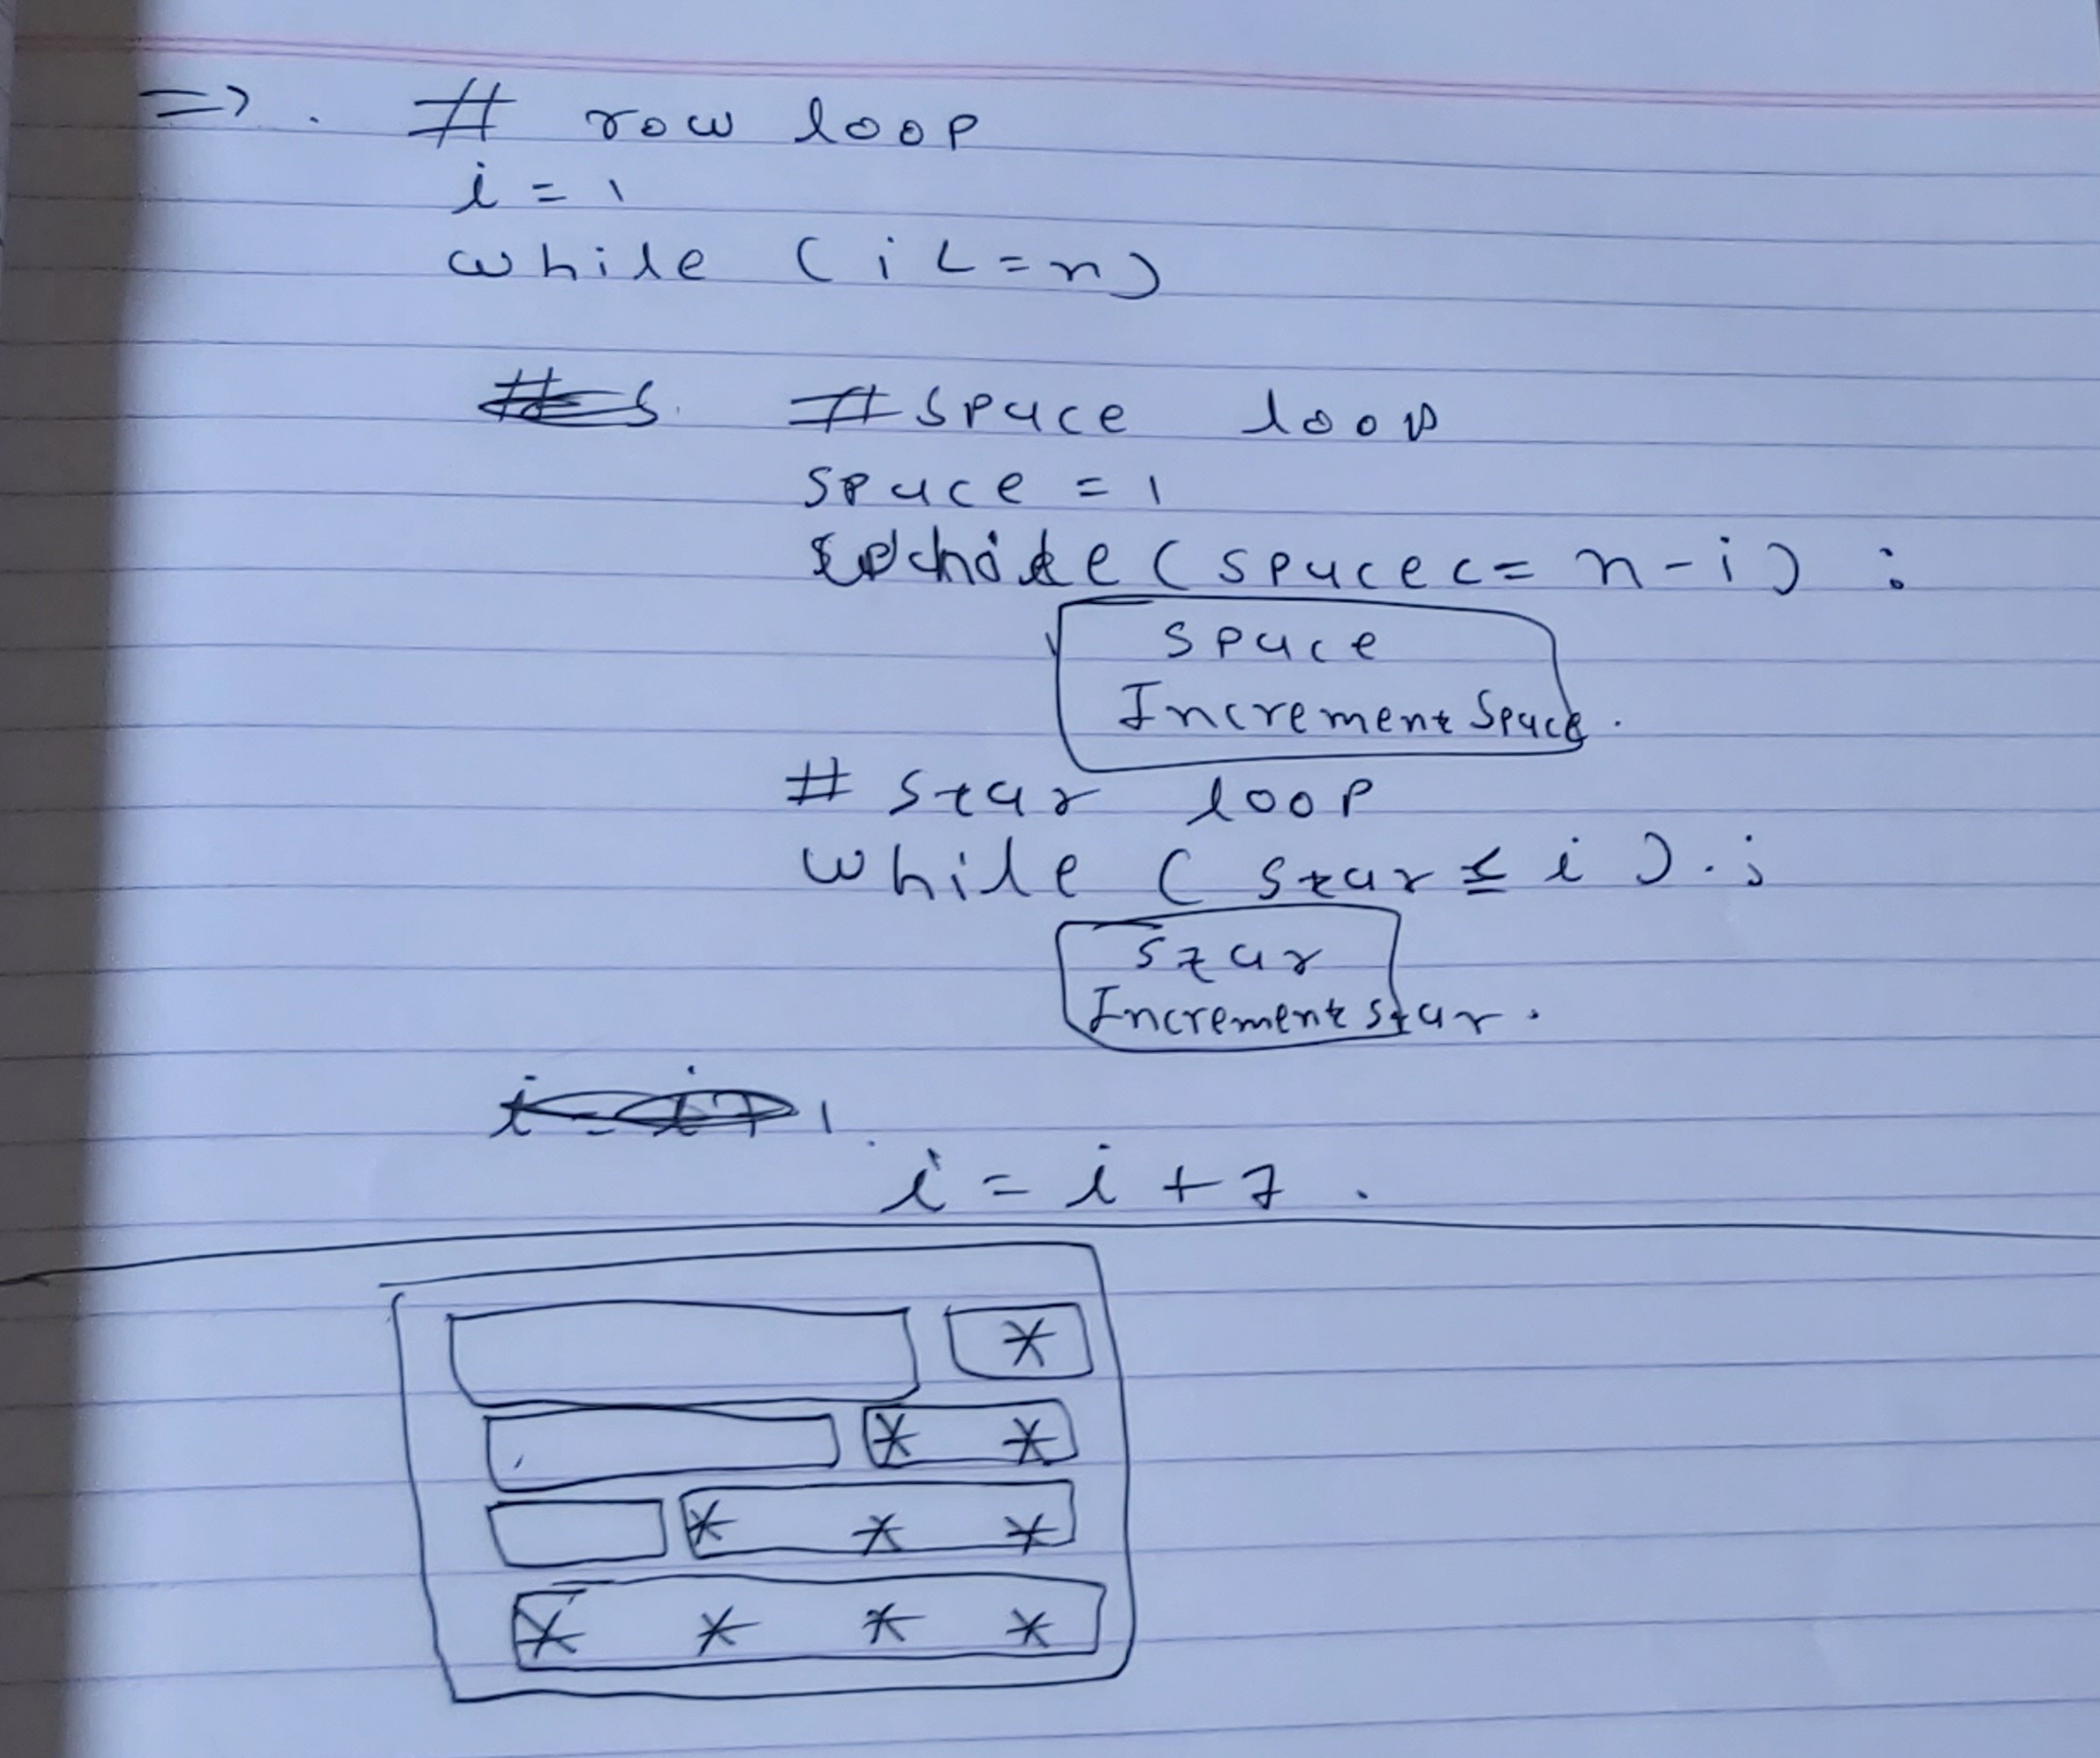 => . # row loop
i = 1
while (i <= n)
# space loop
space = 1
while (space <= n - i) :
space
Increment Space .
# star loop
while ( star ≤ i ) . ;
star
Increment star .
i = i + 1 .
*
* *
* * *
* * * *